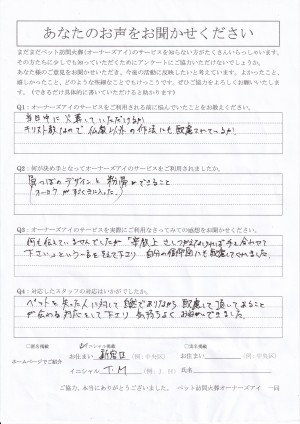 あなたのお声をお聞かせください
まだまだペット訪問火葬(オーナーズアイ)のサービスを知らない方がたくさんいらっしゃいます。
その方たちに少しでも知っていただくためにアンケートにご協力いただけないでしょうか。
あなた様のご意見をお聞かせいただき、今後の活動に反映したいと考えています。よかったこと、
嬉しかったこと、どのような些細なことでもけっこうです。ぜひご協力をよろしくお願いいたします。
(できるだけ具体的に書いていただけると助かります)
Q1：オーナーズアイのサービスをご利用される前に悩んでいたことをお教えください。
当日中に火葬していただけるか?
キリスト教なので仏教以外の作法にも配慮されているか?
Q2：何が決め手となってオーナーズアイのサービスをご利用されましたか。
骨つぼのデザインと粉骨ができること
Q3：オーナーズアイのサービスを実際にご利用なさってみての感想をお聞かせください。
何も伝えていませんでしたが「宗教上さしつかえなければ手を合わせて
下さい」という一言を添えて下さり 自分の信仰面にも配慮してくれました。
Q4：対応したスタッフの対応はいかがでしたか。
ペットを失った人に対して 謙でありながら 配慮して頂いてること
が伝わる対応をして下さり 気持ちよくお願いできました。
□実名掲載
イニシャル掲載
□実名掲載
ホームページでご紹介
お住まい 新宿区 (例：中央区)
お住まい (例：中央区)
イニシャル T.M (例：J.H)
氏名
ご協力、本当にありがとうございました。 ペット訪問火葬オーナーズアイ 一同